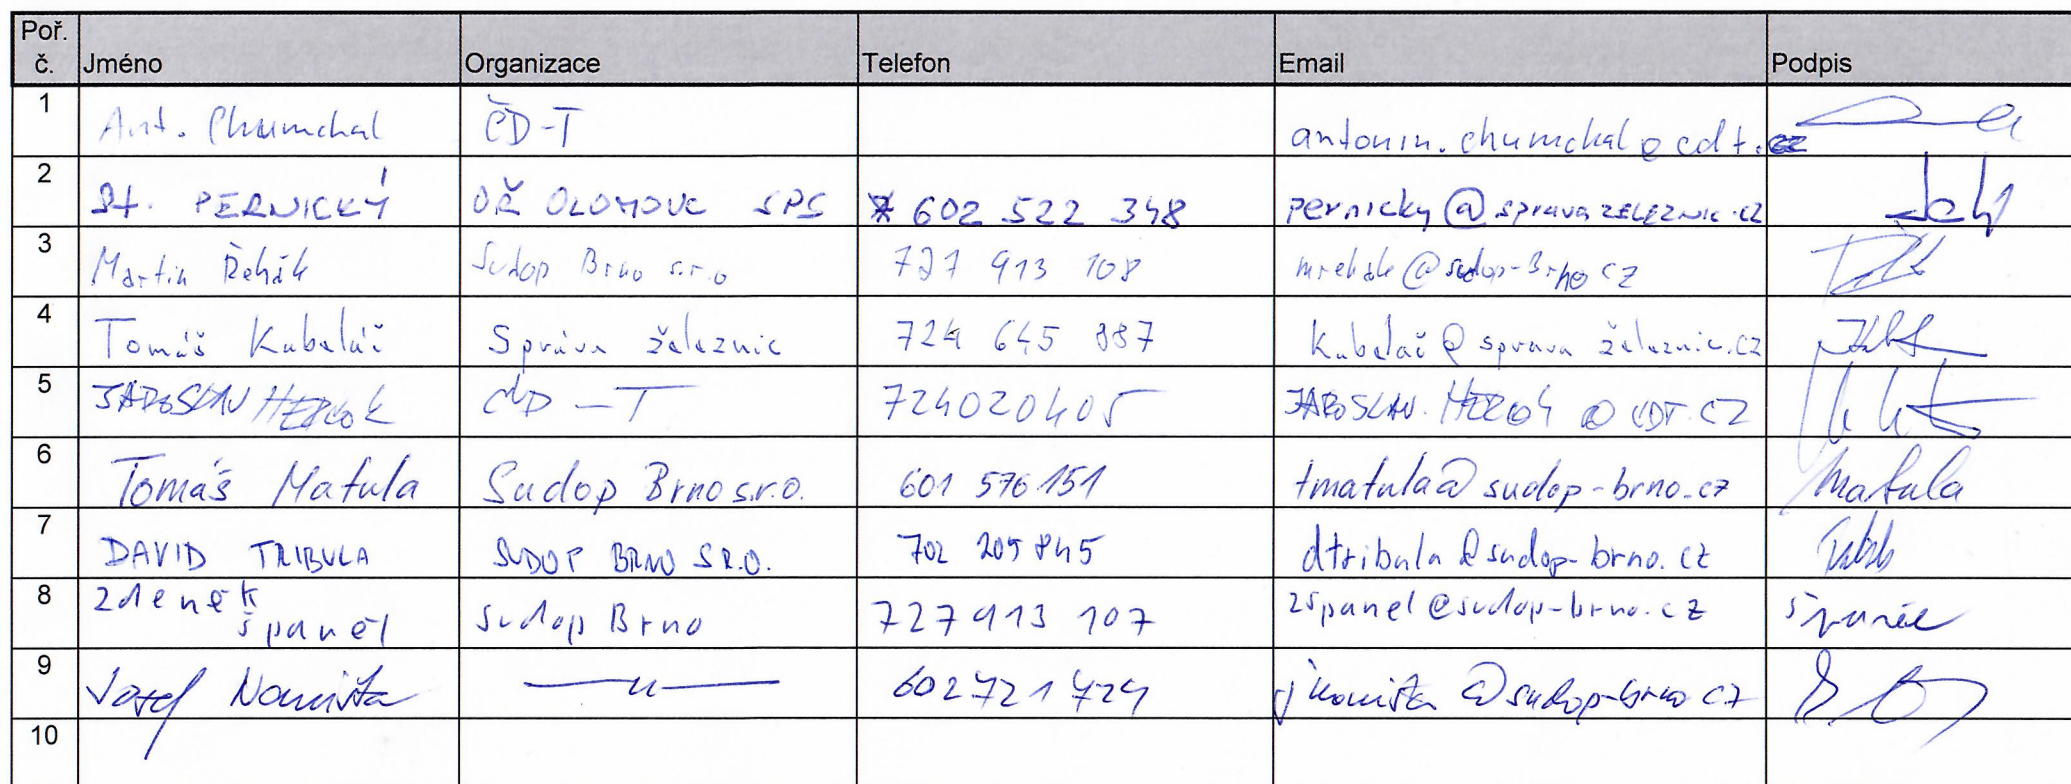 Poř. č. Jméno Organizace Telefon Email Podpis
1 Ant. Chumchal ČD-T antonin.chumchal@cdt.cz
2 St. PERNICKÝ OŘ OLOMOUC SPS 602 522 348 pernicky@spravazeleznic.cz
3 Martin Řehák Sudop Brno s.r.o 727 913 108 mrehak@sudop-Brno cz
4 Tomáš Kubaláč Správa železnic 724 645 887 @ sprava železnic.cz
5 JAROSLAV ČD-T 724020405 JAROSLAV. @ CDT.CZ
6 Tomáš Matula Sudop Brno s.r.o. 601 576 151 tmatula@sudop-brno.cz Matula
7 DAVID TRIBULA SUDOP BRNO S.R.O. 702 209 845 dtribula@sudop-brno.cz
8 zdenek španěl sudop Brno 727913 107 zspanel@sudop-brno.cz
9 Josef —"— 602721724 @sudop-brno cz
10